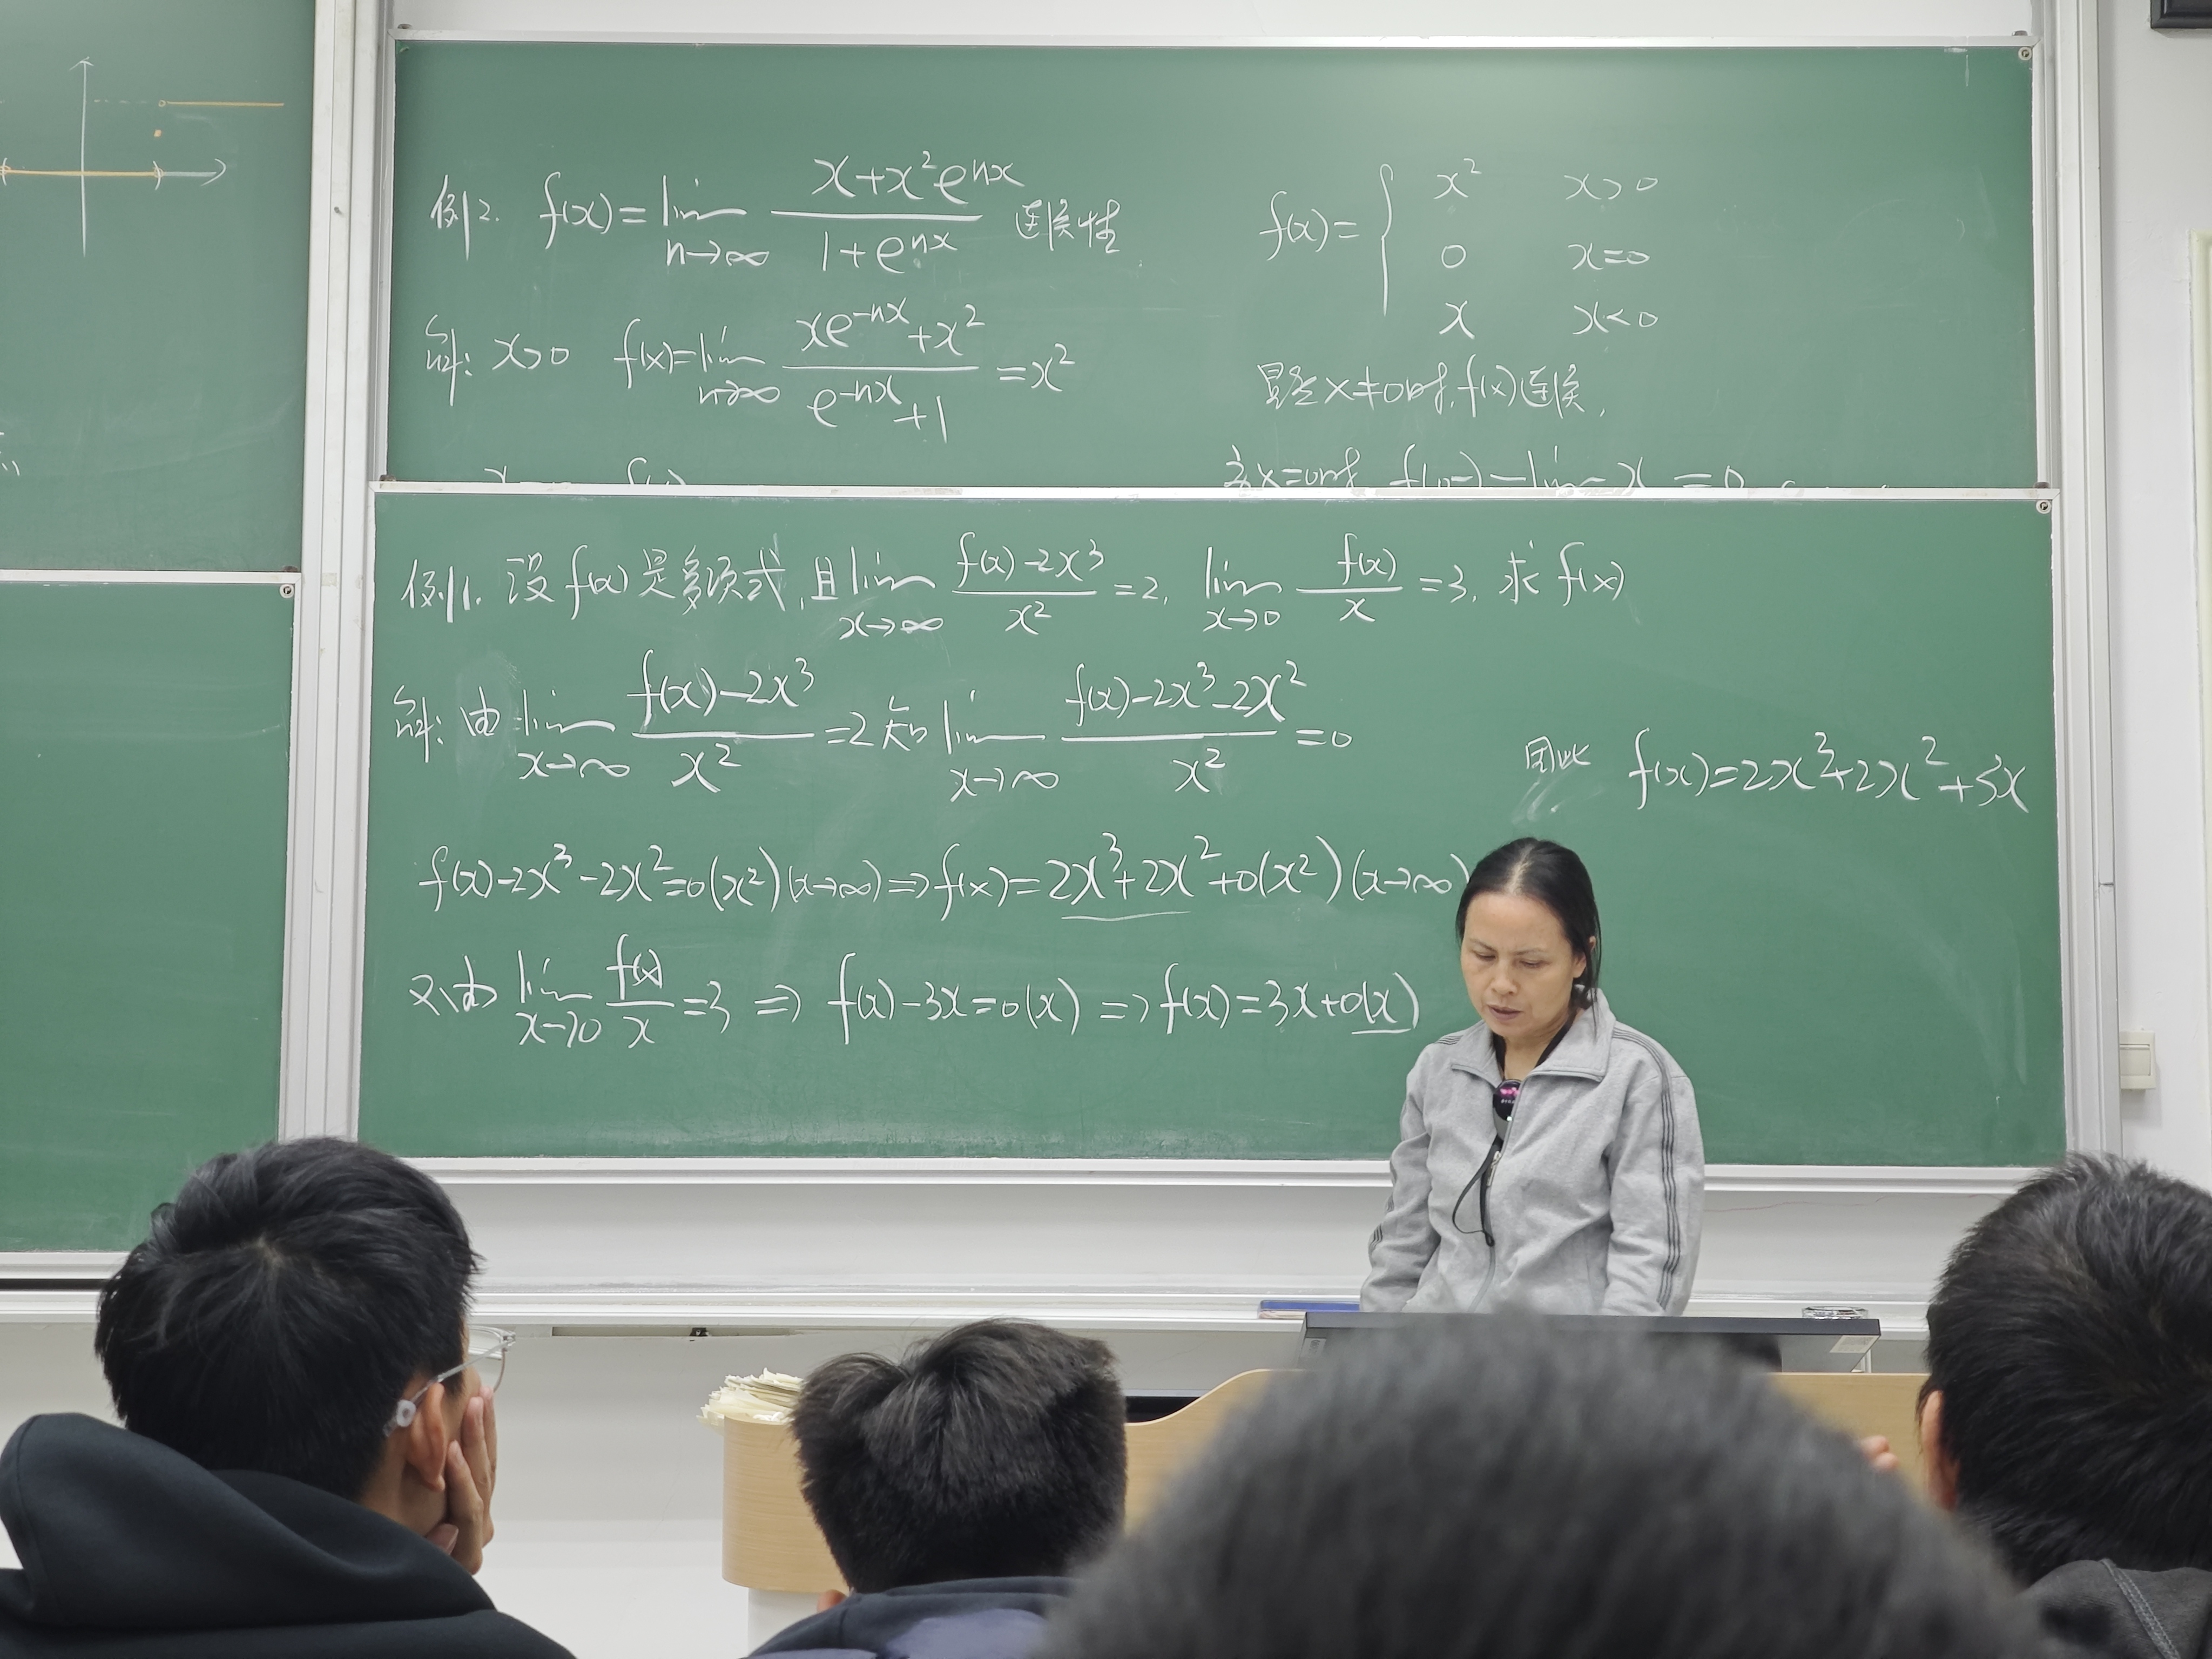 例2. f(x)=lim_{n→∞} (x+x²e^{nx})/(1+e^{nx}) 连续性.
解: x>0 f(x)=lim_{n→∞} (xe^{-nx}+x²)/(e^{-nx}+1) =x²
f(x)= { x² x>0
0 x=0
x x<0
显然x≠0时, f(x)连续,
在x=0时 f(0-)=lim x =0
例1. 设f(x)是多项式, 且lim_{x→∞} (f(x)-2x³)/x² =2, lim_{x→0} f(x)/x =3, 求f(x)
解: 由lim_{x→∞} (f(x)-2x³)/x² =2知lim_{x→∞} (f(x)-2x³-2x²)/x² =0
f(x)-2x³-2x²=o(x²)(x→∞)⇒f(x)=2x³+2x²+o(x²)(x→∞)
又由lim_{x→0} f(x)/x =3 ⇒ f(x)-3x=o(x) ⇒f(x)=3x+o(x)
因此 f(x)=2x³+2x²+3x